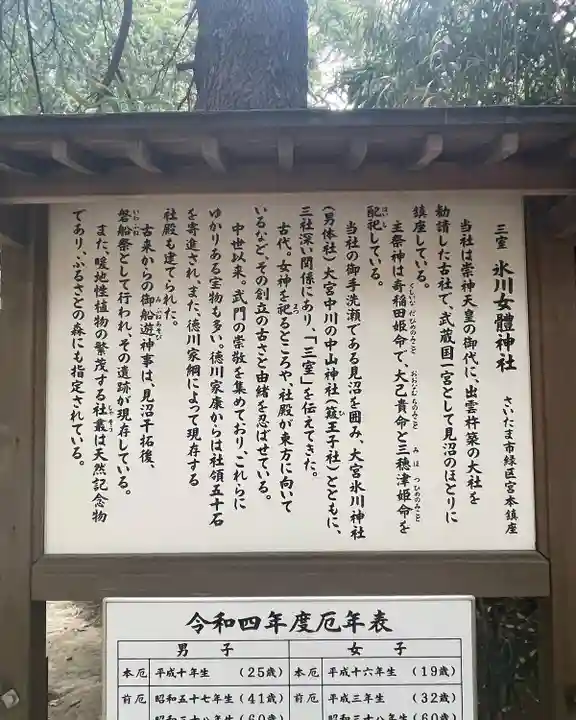 三室 氷川女體神社
さいたま市緑区宮本鎮座
当社は崇神天皇の御代に、出雲杵築の大社を
勧請した古社で、武蔵国一宮として見沼のほとりに
鎮座している。
主祭神は奇稲田姫命で、大己貴命と三穂津姫命を
くしいなだひめのみこと おおなむちのみこと みほつひめのみこと
配祀している。
はいし
当社の御手洗瀬である見沼を囲み、大宮氷川神社
(男体社)大宮中川の中山神社(簸王子社)とともに、
ひ
三社深い関係にあり、「三室」を伝えてきた。
古代。女神を祀るところや、社殿が東方に向いて
いるなど、その創立の古さと由緒を忍ばせている。
中世以来。武門の崇敬を集めており、これらに
ゆかりある宝物も多い。徳川家康からは社領五十石
を寄進され、また、徳川家綱によって現存する
社殿も建てられた。
古来からの御船遊神事は、見沼干拓後、
みふねあそび
磐船祭として行われ、その遺跡が現存している。
いわふね
また、暖地性植物の繁茂する社叢は天然記念物
であり、ふるさとの森にも指定されている。
令和四年度厄年表
男子 女子
本厄 平成十年生 (25歳) 本厄 平成十六年生 (19歳)
前厄 昭和五十七年生(41歳) 前厄 平成三年生 (32歳)
昭和三十八年生(60歳) 昭和三十八年生(60歳)